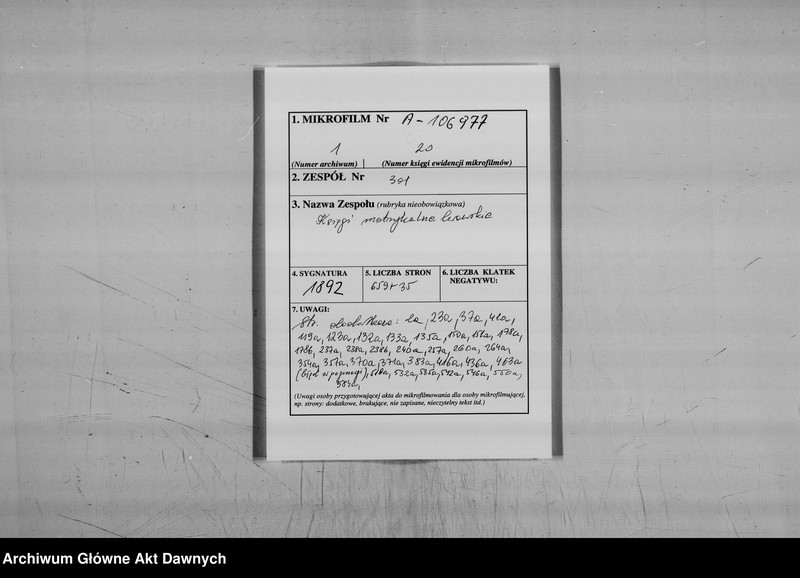 1. MIKROFILM Nr A-106977
1 20
(Numer archiwum) (Numer księgi ewidencji mikrofilmów)
2. ZESPÓŁ Nr 301
3. Nazwa Zespołu (rubryka nieobowiązkowa)
Księgi metrykalne lwowskie
4. SYGNATURA 5. LICZBA STRON 6. LICZBA KLATEK
NEGATYWU:
1892 659+35
7. UWAGI:
Str. dodatkowe: 2a, 23a, 37a, 41a,
119a, 123a, 132a, 133a, 135a, 150a, 151a, 178a,
178b, 237a, 238a, 238b, 240a, 257a, 260a, 264a,
354a, 357a, 370a, 371a, 383a, 416a, 436a, 463a
(błąd w paginacji), 528a, 532a, 535a, 542a, 546a, 550a,
584a,
(Uwagi osoby przygotowującej akta do mikrofilmowania dla osoby mikrofilmującej,
np. strony: dodatkowe, brakujące, nie zapisane, nieczytelny tekst itd.)
Archiwum Główne Akt Dawnych